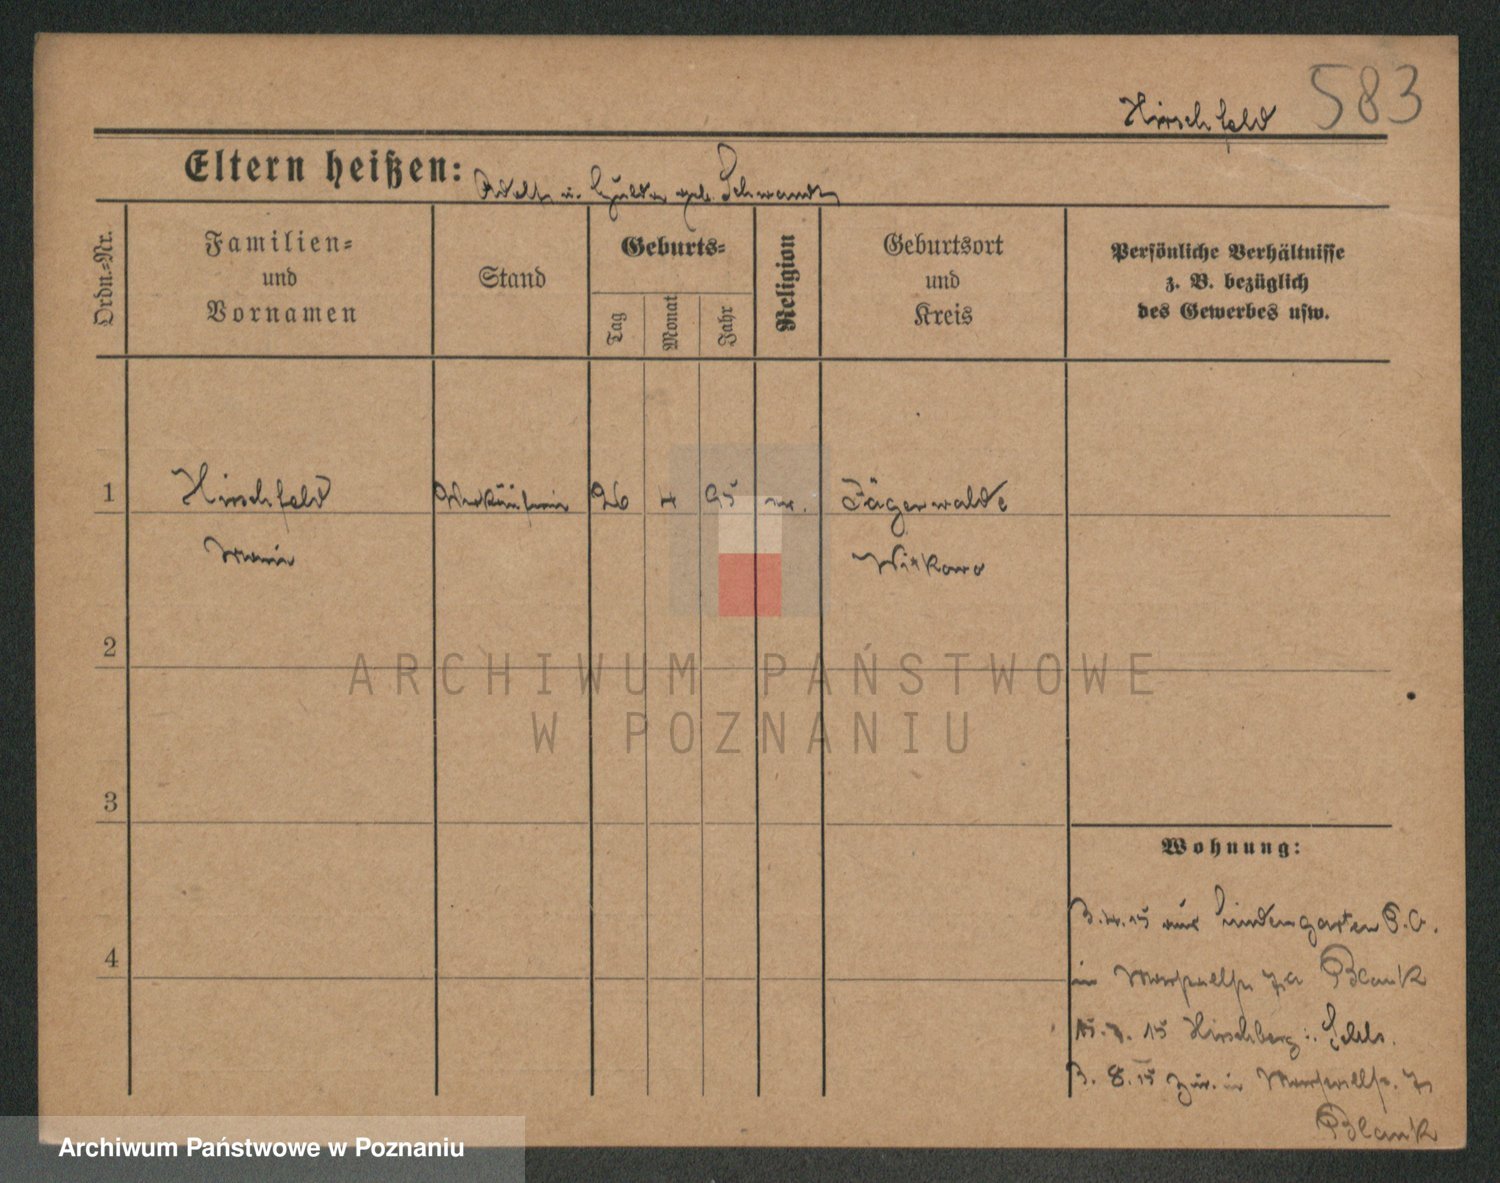 583
Hirschfeld
Eltern heißen: Adolf u. Hulda geb. Schwandt
Ordn.=Nr.
Familien=
und
Vornamen
Stand
Geburts=
Tag
Monat
Jahr
Religion
Geburtsort
und
Kreis
Persönliche Verhältnisse
z. B. bezüglich
des Gewerbes usw.
1
Hirschfeld
26 4 95
Jägerwalde
Marie
Witkowo
2
ARCHIWUM PAŃSTWOWE
W POZNANIU
3
Wohnung:
3.4.15 aus Lindengarten P.O.
4
in 72 Blank
15.7.15 Hirschberg i. Schls.
3.8.15 zur. in 72
Blank
Archiwum Państwowe w Poznaniu